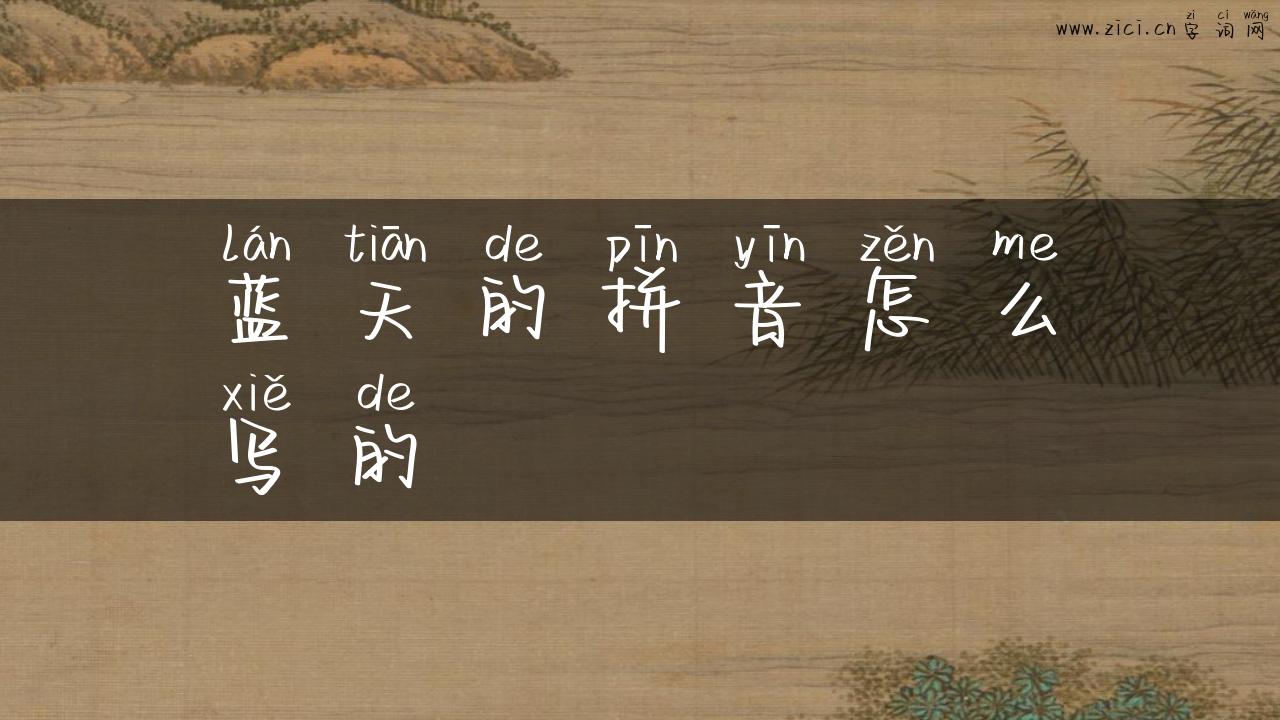 zì cí wǎng
www.zici.cn 字 词 网
lán tiān de pīn yīn zěn me
蓝 天 的 拼 音 怎 么
xiě de
写 的